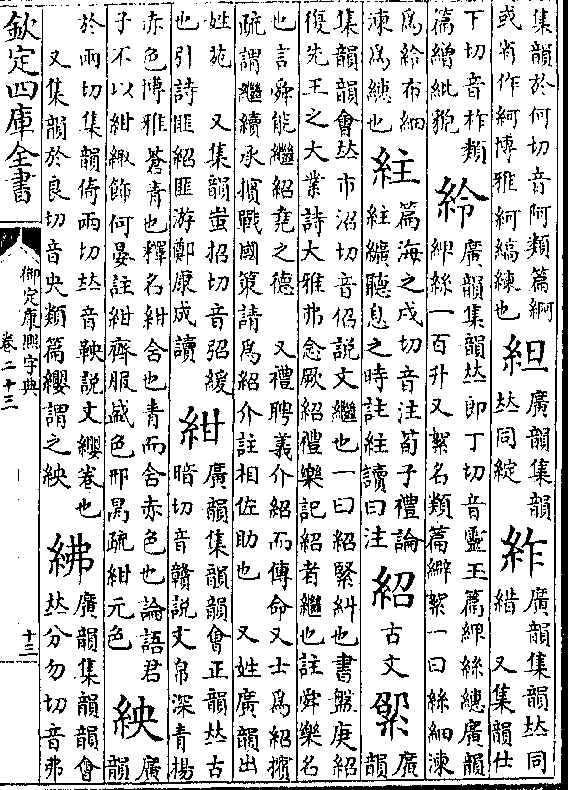 集韻於何切音阿類篇
或省作䋍博雅䋍縞練也
䋎
廣韻集韻
𠀤同綻
䋏
廣韻集韻𠀤同
又集韻仕
下切音柞類
篇繒紕貌
紷
廣韻集韻𠀤郎丁切音靈玉篇縪絲繐廣韻
縪絲一百升又絮名類篇縪絮一曰絲細湅
爲紷布細
湅爲繐也
紸
篇海之戍切音注荀子禮論
紸纊聽息之時註紸讀曰注
紹
古文
廣
韻
集韻韻會𠀤市沼切音佋說文繼也一曰紹緊糾也書盤庚紹
復先王之大業詩大雅弗念厥紹禮樂記紹者繼也註舜樂名
也言舜能繼紹堯之德 又禮聘義介紹而傳命又士爲紹擯
疏謂繼續承擯戰國策請爲紹介註相佐助也 又姓廣韻出
姓苑 又集韻蚩招切音弨緩
也引詩匪紹匪游鄭康成讀
紺
廣韻集韻韻會正韻𠀤古
暗切音贛說文帛深青揚
赤色博雅蒼青也釋名紺含也青而含赤色也論語君
子不以紺緅飾何晏註紺齊服盛色邢昺疏紺元色
紻
廣
韻
於兩切集韻倚兩切𠀤音鞅說文纓卷也
又集韻於良切音央類篇纓謂之紻
紼
廣韻集韻韻會
𠀤分勿切音弗
欽定四庫全書
御定康熙字典
卷二十三
十三